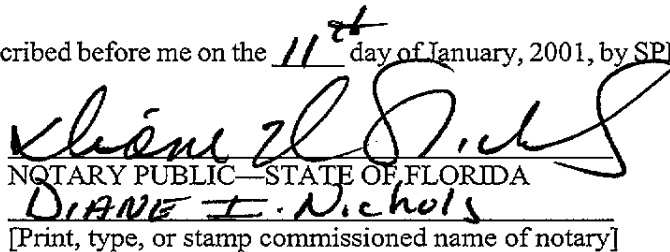 cribed before me on the 11th day of January, 2001, by SP
Diane I Nichols
NOTARY PUBLIC—STATE OF FLORIDA
DIANE I. Nichols
[Print, type, or stamp commissioned name of notary]